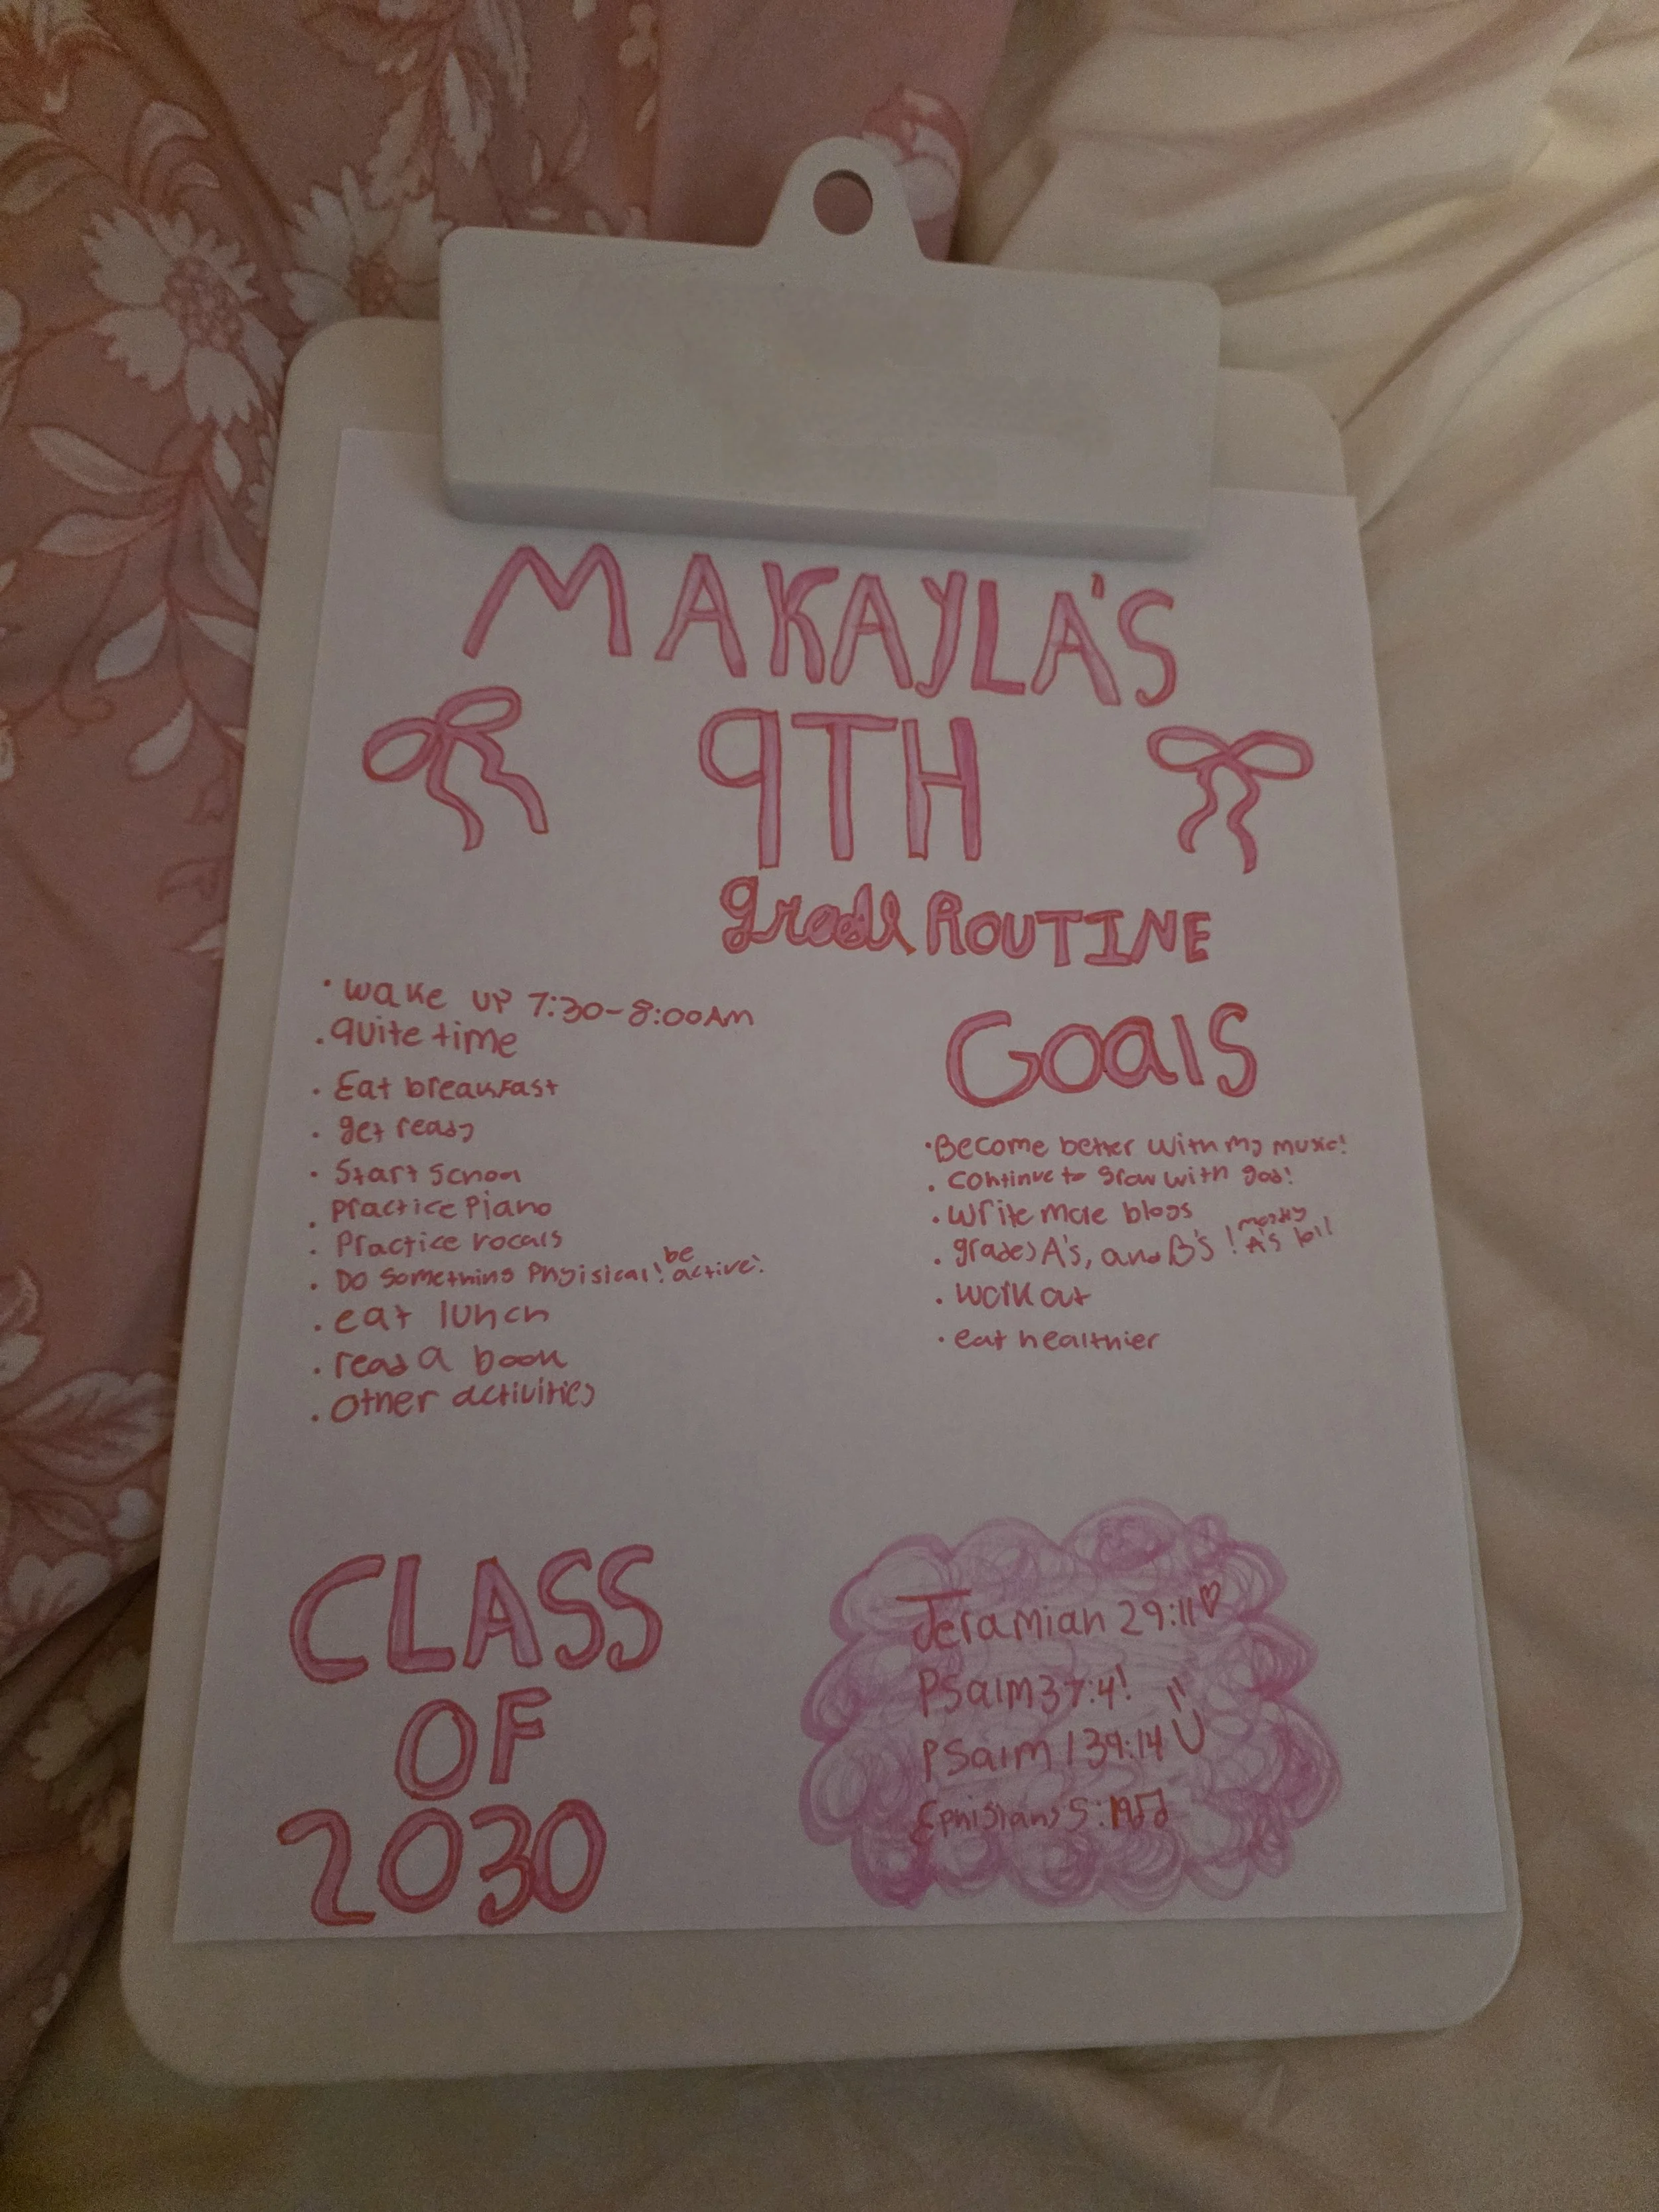 MAKAYLA'S
9TH
grade ROUTINE
• wake up 7:30-8:00AM
• quite time
• Eat breakfast
• get ready
• Start School
• Practice Piano
• Practice vocals
• DO something Phyisical! be active!
• eat lunch
• read a book
• other activities
Goals
• Become better with my music!
• continue to grow with god!
• write more blogs
• grades A's, and B's ! mostly A's lol!
• work out
• eat healthier
CLASS
OF
2030
Jeramiah 29:11♡
Psalm 37:4!
Psalm 139:14
Ephisians 5:19♫